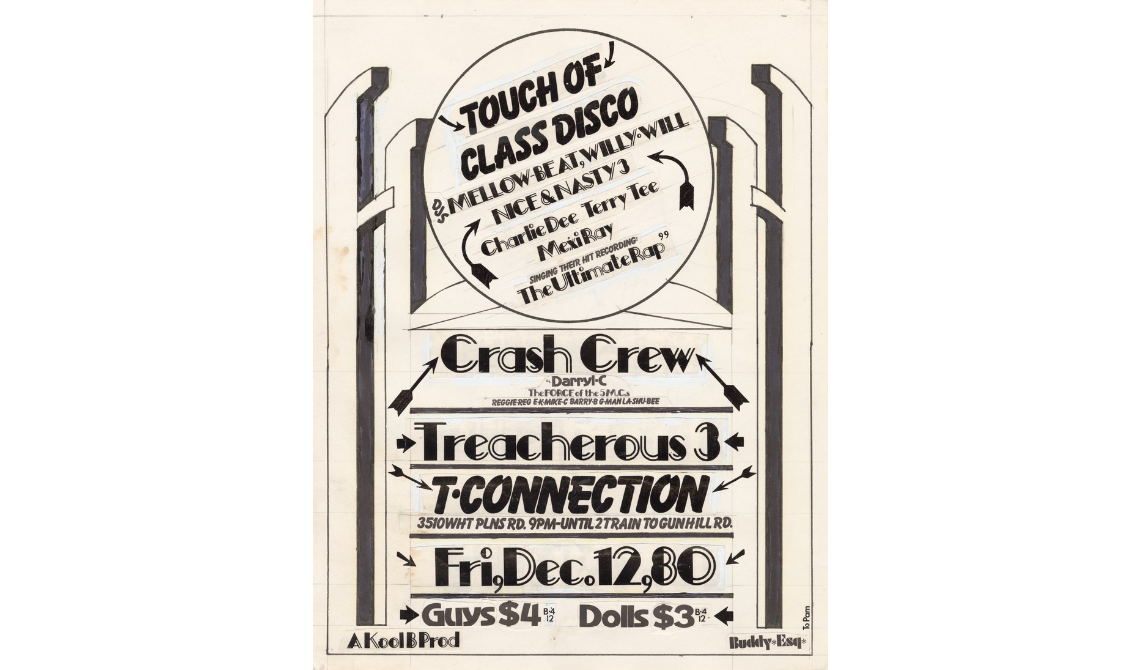 TOUCH OF
CLASS DISCO
DJS MELLOW-BEAT, WILLY•WILL
NICE & NASTY 3
Charlie Dee Terry Tee
Mexi Ray
SINGING THEIR HIT RECORDING:
The Ultimate Rap"
Crash Crew
Darryl-C
The FORCE of the 5 M.C.s
REGGIE REG E-K-MIKE-C BARRY-B G-MAN LA-SHU-BEE
Treacherous 3
T•CONNECTION
3510 WHT PLNS RD. 9PM-UNTIL 2 TRAIN TO GUN HILL RD.
Fri, Dec. 12, 80
Guys $4 B-4 12 Dolls $3 B-4 12
To Pam
A Kool B Prod
Buddy*Esq*